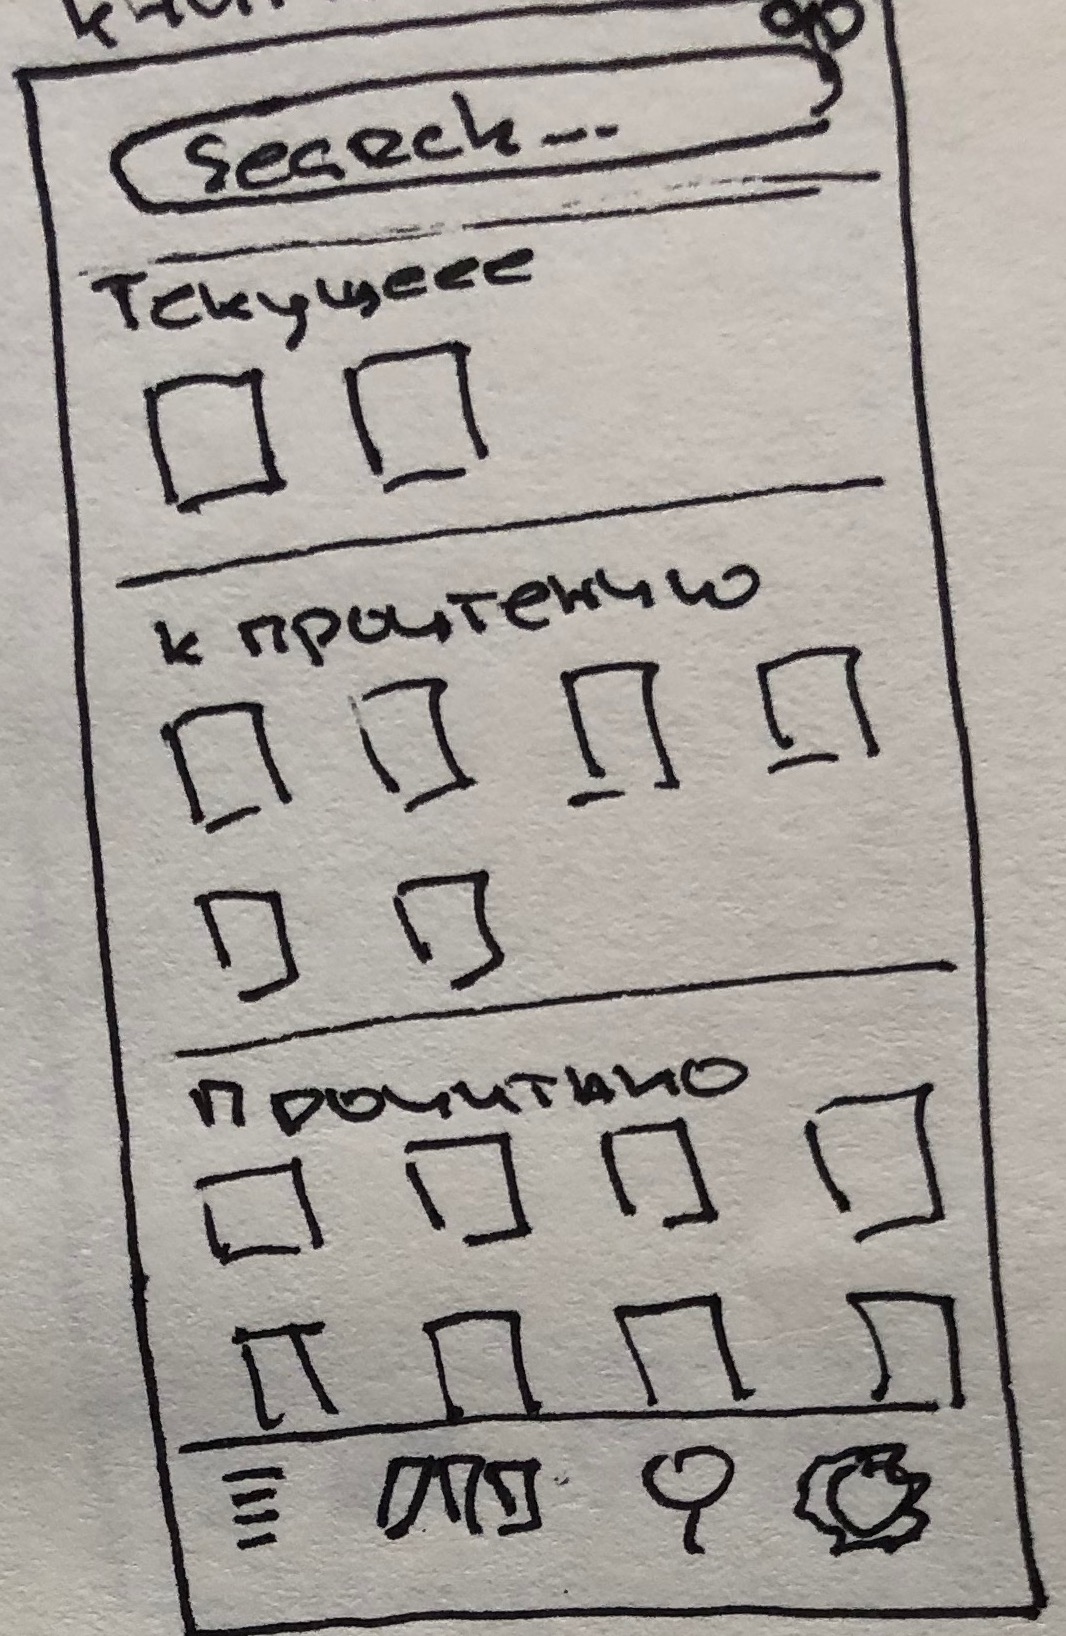 Search...
Текущеее
к прочтению
Прочитано